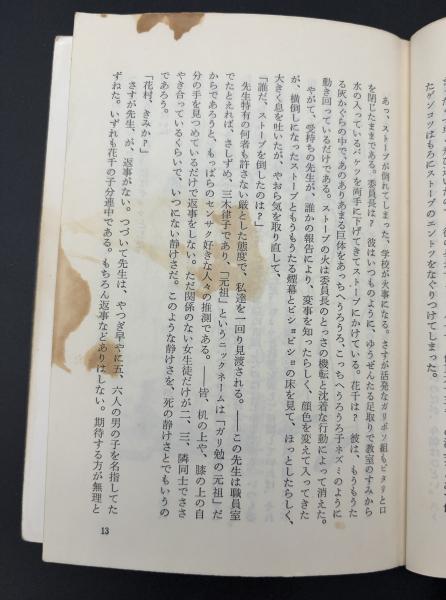 たゲンコツはもろにストーブのエントツをなぐりつけてしまった。
あっ、ストーブが倒れてしまった、学校が火事になる。さすが活発なガリボソ組もピタリと口
を閉じたままである。委員長は? 彼はいつものように、ゆうぜんたる足取りで教室のすみから
水の入っているバケツを両手に下げてきてストーブにかけている。花千は? 彼は、もうもうた
る灰かぐらの中で、あのありあまる巨体をあっちへうろうろ、こっちへうろうろ子ネズミのように
動き回っているだけである。ストーブの火は委員長のとっさの機転と沈着な行動によって消えた。
やがて、受持ちの先生が、誰かの報告により、変事を知ったらしく、顔色を変えて入ってきた
が、横倒しになったストーブともうもうたる煙幕とビショビショの床を見て、ほっとしたらしく、
大きく息を吐いたが、やおら気を取り直して、
「誰だ、ストーブを倒したのは?」
先生特有の何者も許さない厳とした態度で、私達を一回り見渡される。——この先生は職員室
でたとえれば、さしずめ、三木律子であり、「元祖」というニックネームは「ガリ勉の元祖」だ
からであろうと、もっぱらのセンサク好きな人々の推測である。——皆、机の上や、膝の上の自
分の手を見つめているだけで返事をしない。ただ関係のない女生徒だけが二、三、隣同士でささ
やき合っているくらいで、いつにない静けさだ。このような静けさを、死の静けさとでもいうの
であろう。
「花村、きみか?」
さすが先生、が、返事がない。つづいて先生は、やつぎ早やに五、六人の男の子を名指してた
ずねた。いずれも花千の子分連中である。もちろん返事などありはしない。期待する方が無理と
13